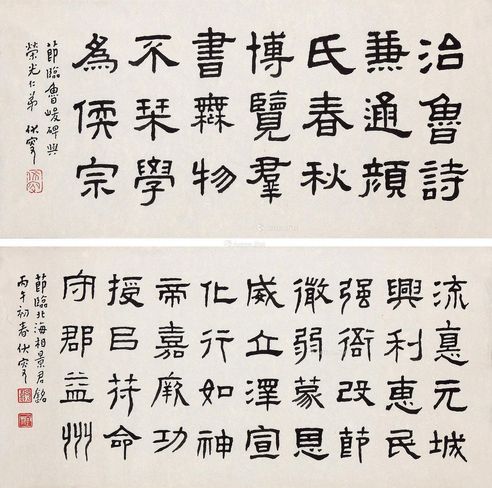 治魯詩
兼通顔
氏春秋
博覽羣
書無物
不栞學
為偄宗
節臨魯峻碑與
榮光仁弟 伏
流悳元城
興利惠民
强衙改節
微弱蒙恩
威立澤宣
化行如神
帝嘉厥功
授㠯符命
守郡益州
節臨北海相景君銘
丙午初春 伏